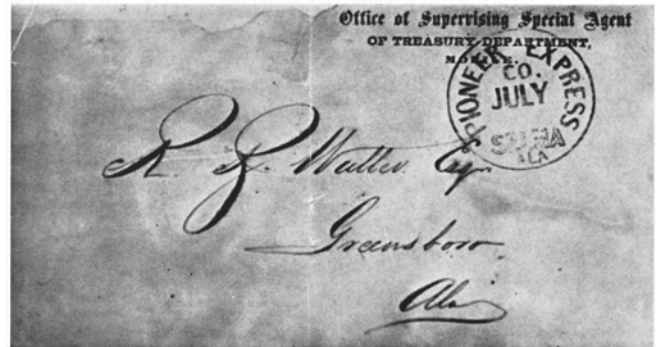 Office of Supervising Special Agent
OF TREASURY DEPARTMENT,
MOBILE.
PIONEER EXPRESS
CO.
JULY
SELMA
ALA
Esqr
Greensboro
Ala